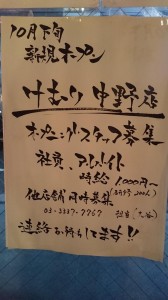 10月下旬
新規オープン
けむり 中野店
オープニングスタッフ募集
社員、アルバイト
時給 1,000円〜
他店舗同時募集
03-3337-7967 担当
連絡お待ちしてます!!